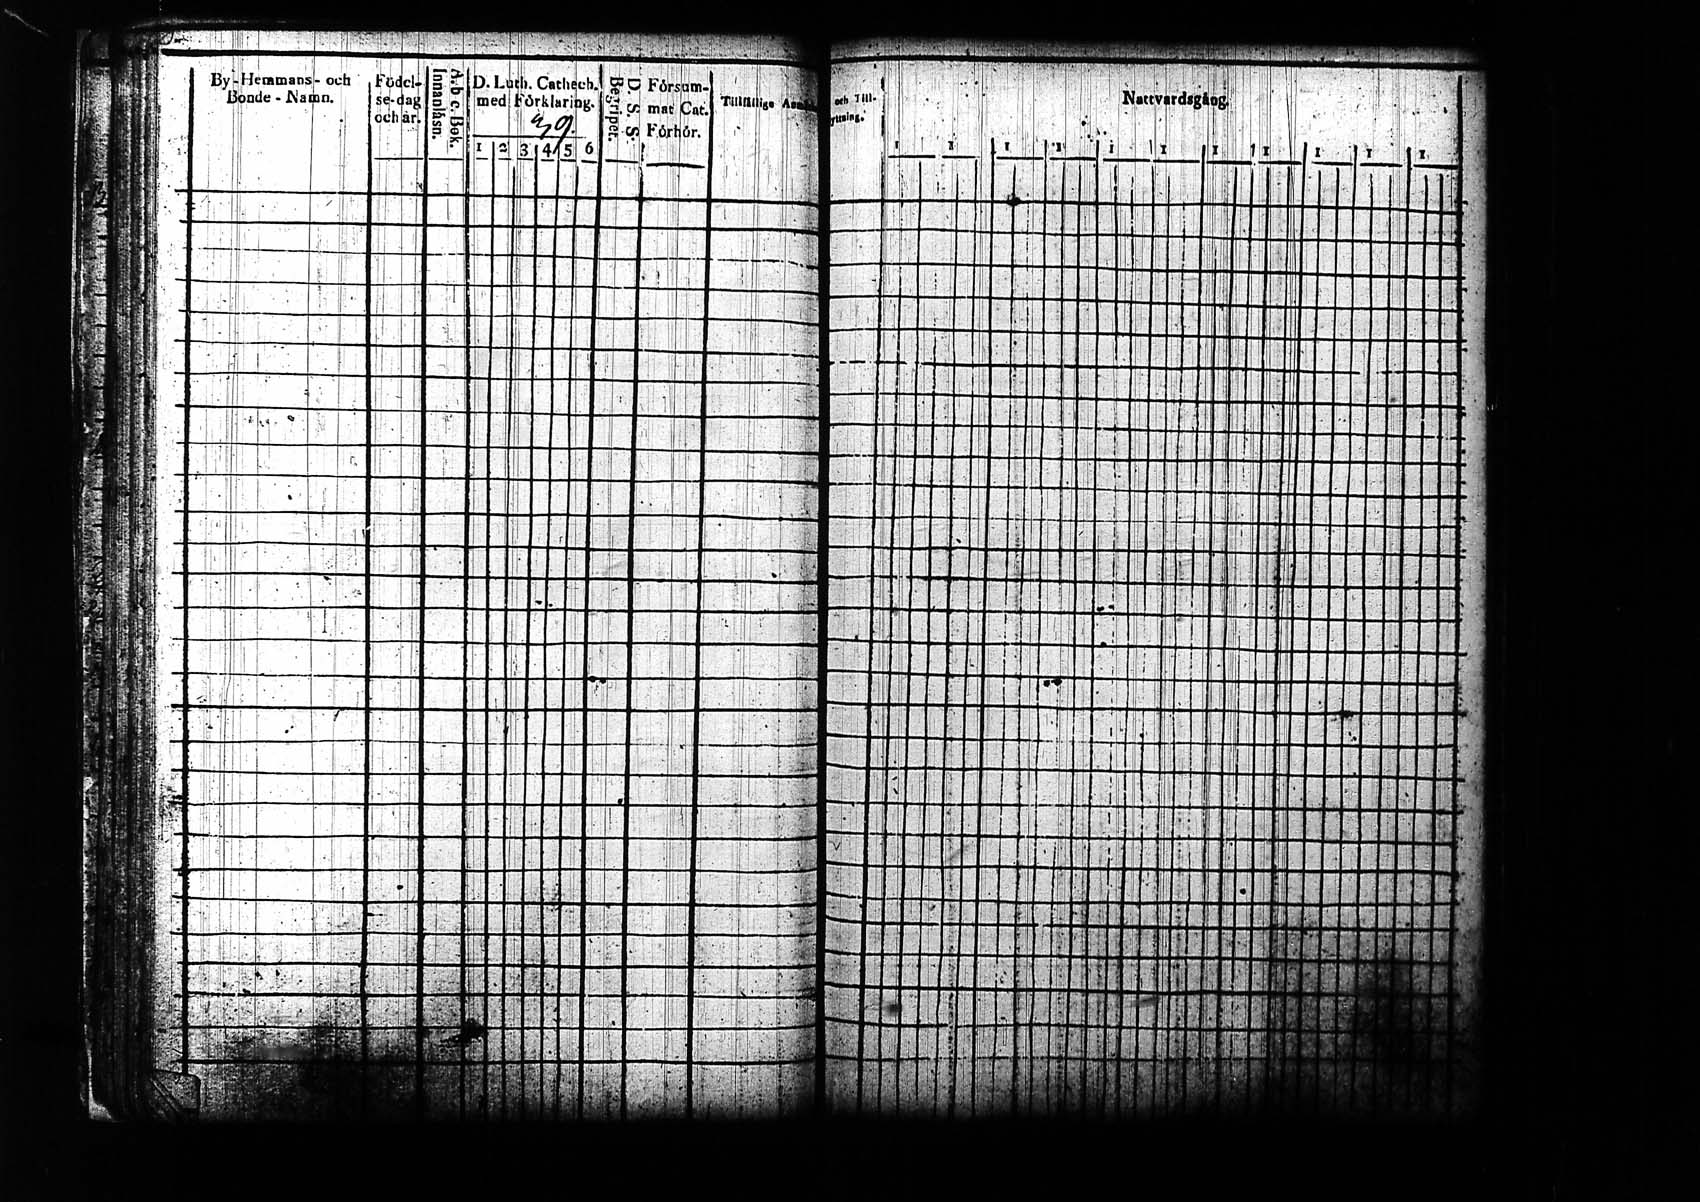 By-Hemmans- och
Bonde-Namn.
Födel-
se-dag
och år.
A. b. c. Bok.
Innanläsn.
D. Luth. Cathech.
med Förklaring.
1 2 3 4 5 6
D. S. S.
Begripet.
Försum-
mat Cat.
Förhör.
Tillfällige
och Till-
yttning.
Nattvardsgång.
1 1 1 1 1 1 1 1 1 1 1